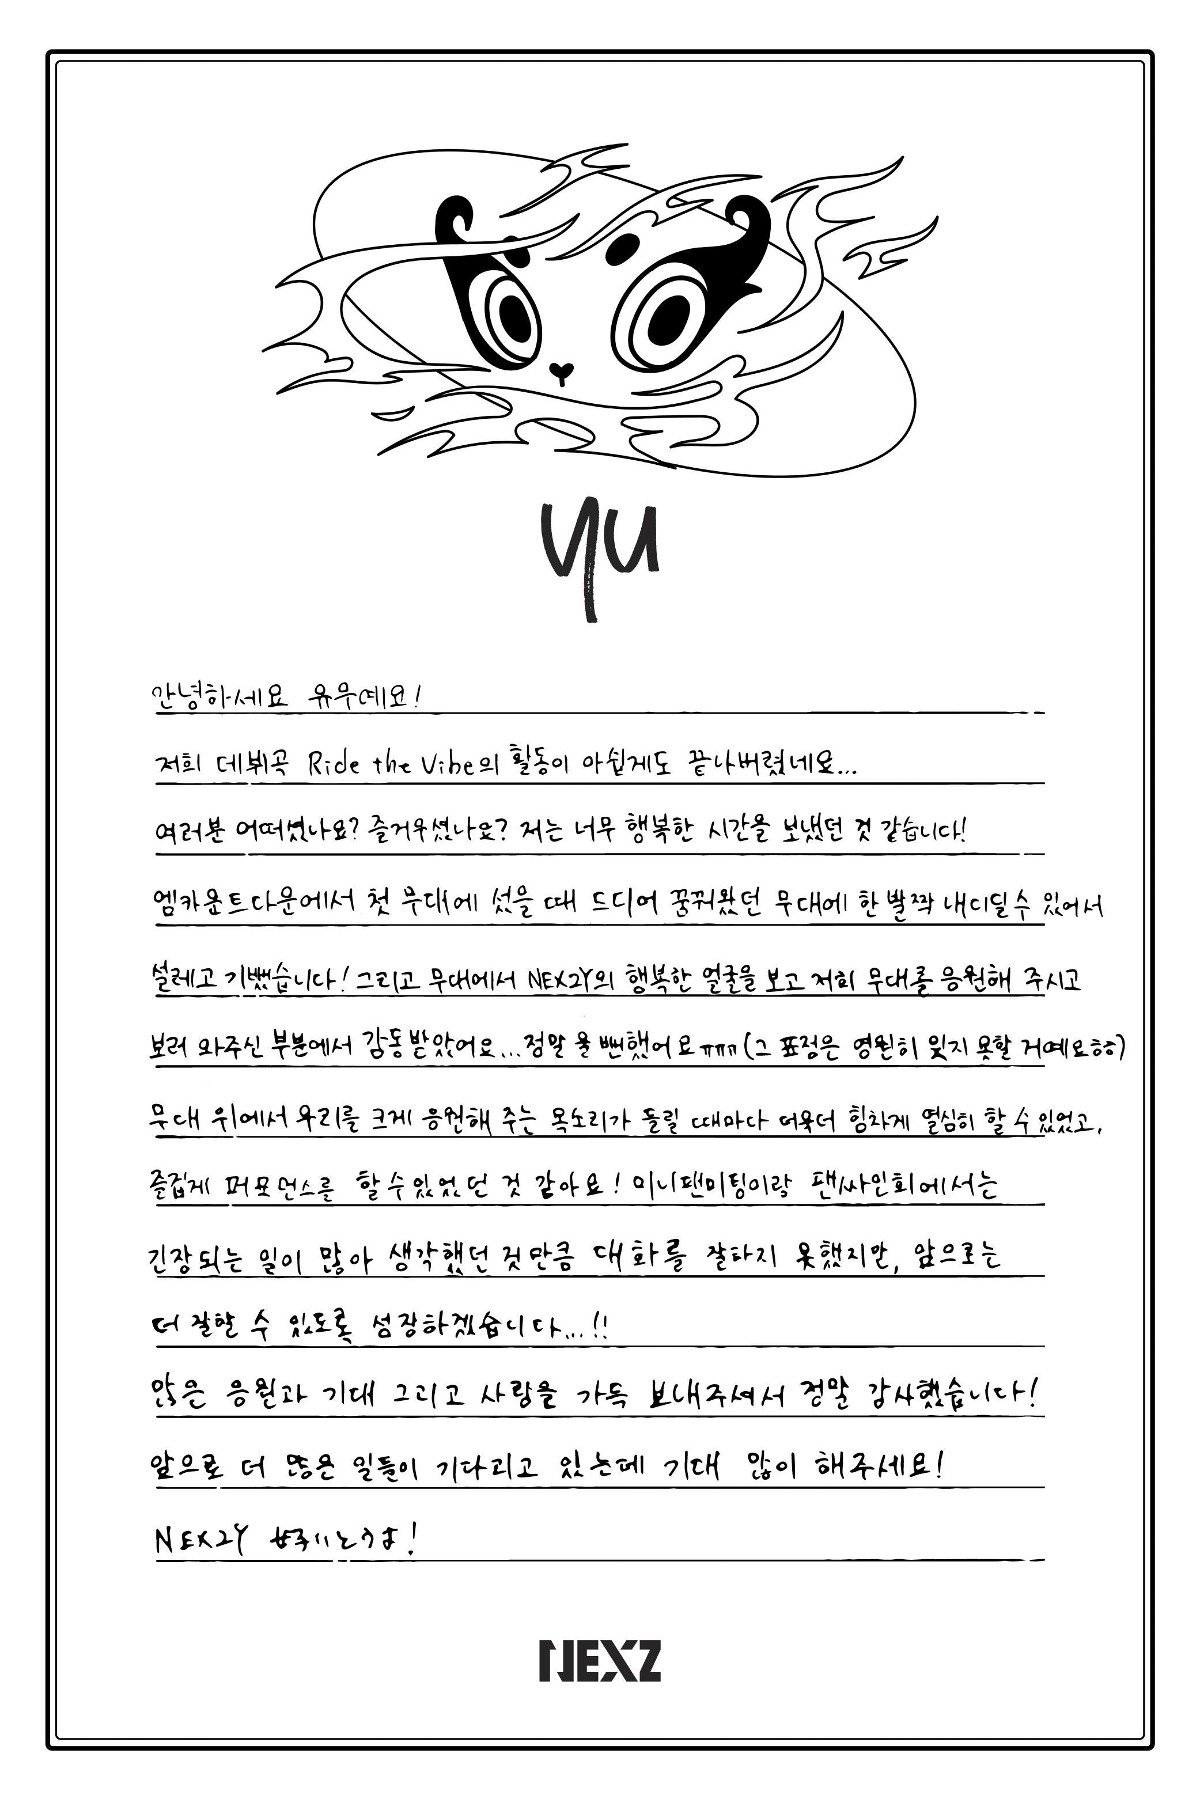 yu
안녕하세요 유우예요!
저희 데뷔곡 Ride the Vibe의 활동이 아쉽게도 끝나버렸네요...
여러분 어떠셨나요? 즐거우셨나요? 저는 너무 행복한 시간을 보냈던 것 같습니다!
엠카운트다운에서 첫 무대에 섰을 때 드디어 꿈꿔왔던 무대에 한 발짝 내디딜 수 있어서
설레고 기뻤습니다! 그리고 무대에서 NEX2Y의 행복한 얼굴을 보고 저희 무대를 응원해 주시고
보러 와주신 부분에서 감동받았어요...정말 울 뻔했어요ㅠㅠㅠ(그 표정은 영원히 잊지 못할 거예요ㅎㅎ)
무대 위에서 우리를 크게 응원해 주는 목소리가 들릴 때마다 더욱더 힘차게 열심히 할 수 있었고,
즐겁게 퍼포먼스를 할 수 있었던 것 같아요! 미니팬미팅이랑 팬싸인회에서는
긴장되는 일이 많아 생각했던 것만큼 대화를 잘하지 못했지만, 앞으로는
더 잘할 수 있도록 성장하겠습니다...!!
많은 응원과 기대 그리고 사랑을 가득 보내주셔서 정말 감사했습니다!
앞으로 더 많은 일들이 기다리고 있는데 기대 많이 해주세요!
NEX2Y
NEXZ